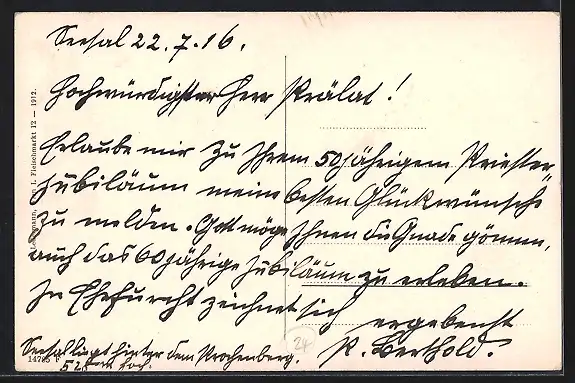 Seesal 22.7.16.
Hochwürdigster Herr Prälat!
Erlaube mir zu Ihrem 50jährigem Priester„
Jubiläum meine besten Glückwünsche
zu melden. Gott möge Ihnen die Gnade gönnen,
auch das 60jährige Jubiläum zu erleben.
In Ehrfurcht zeichnet sich
ergebenst
P. Berthold.
Seesal liegt hinter dem Prochenberg.
52
24
14765
I. Fleischmarkt 12 — 1912.